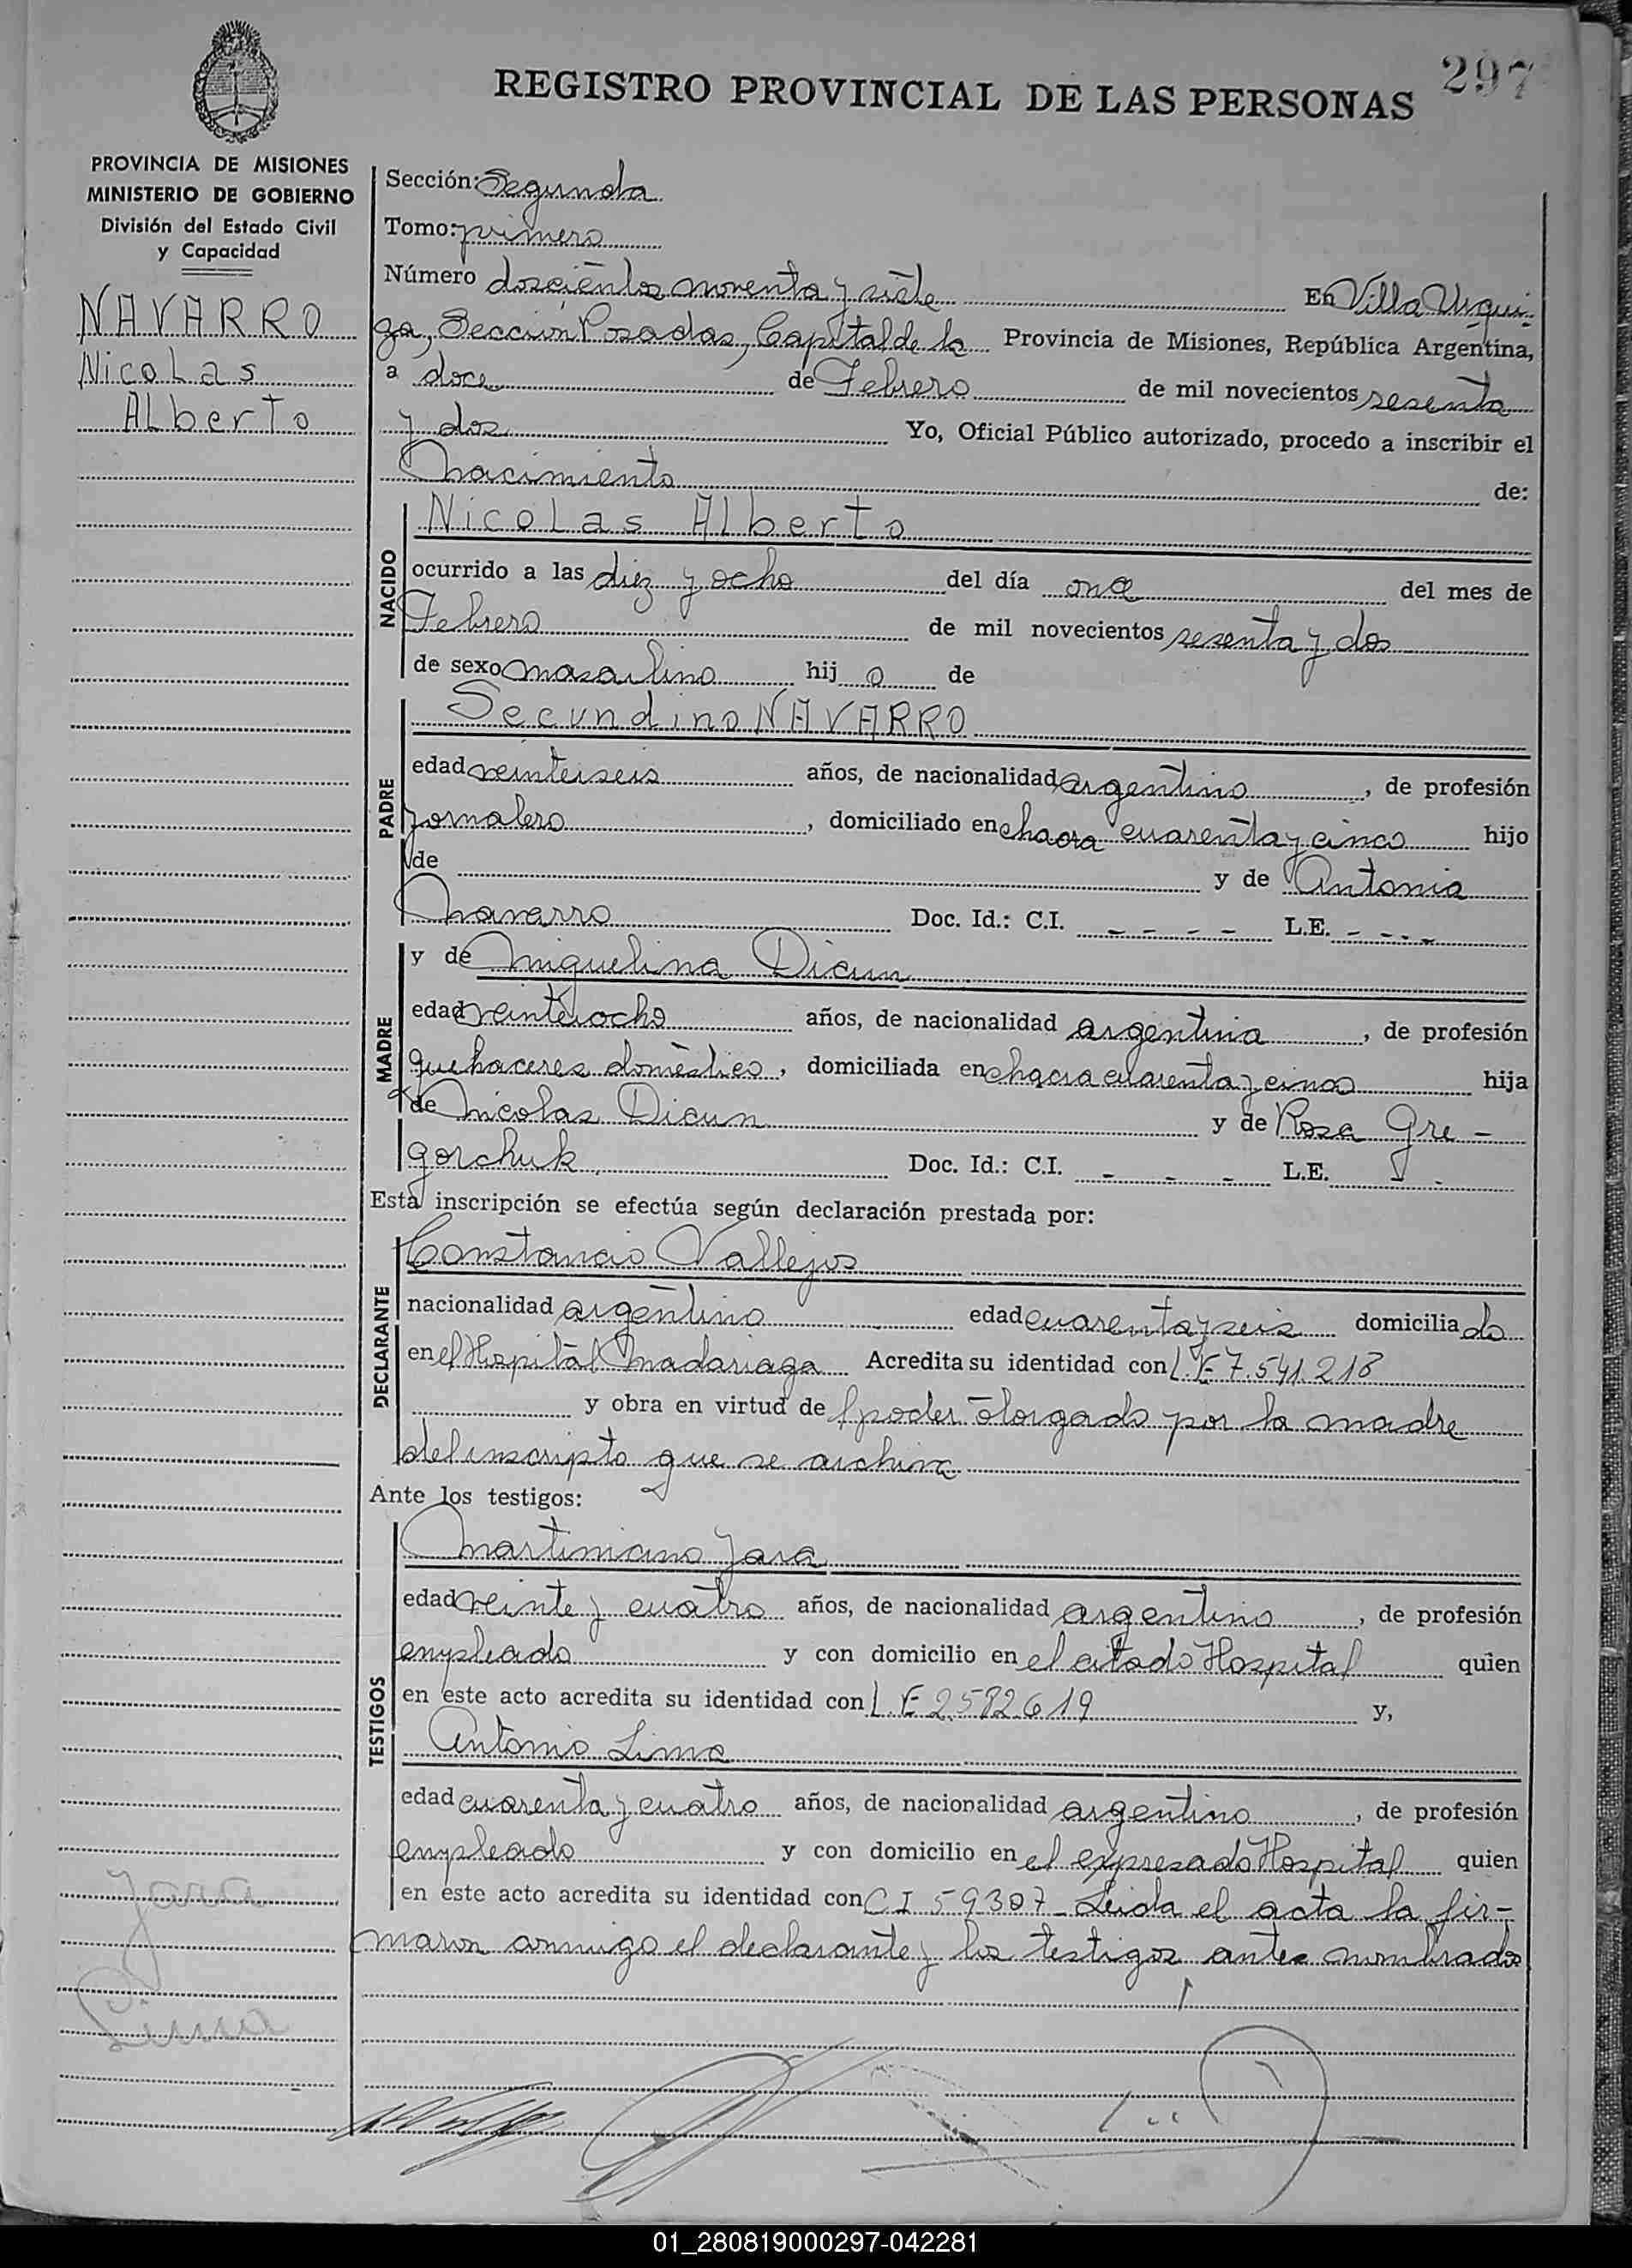 297
REGISTRO PROVINCIAL DE LAS PERSONAS
PROVINCIA DE MISIONES
MINISTERIO DE GOBIERNO
División del Estado Civil
y Capacidad
NAVARRO
Nicolas
Alberto
Sección: Segunda
Tomo: primero
Número doscientos noventa y siete En Villa Urqui-
za, Sección Posadas, Capital de la Provincia de Misiones, República Argentina,
a doce de Febrero de mil novecientos sesenta
y dos Yo, Oficial Público autorizado, procedo a inscribir el
Nacimiento de:
NACIDO
Nicolas Alberto
ocurrido a las diez y ocho del día once del mes de
Febrero de mil novecientos sesenta y dos
de sexo masculino hij o de
PADRE
Secundino NAVARRO
edad veinteiseis años, de nacionalidad argentino, de profesión
jornalero, domiciliado en chacra cuarenta y cinco hijo
de y de Antonia
Navarro Doc. Id.: C.I. - - - - L.E. - - - -
MADRE
y de Miguelina Dicun
edad veinteiocho años, de nacionalidad argentina, de profesión
quehaceres doméstico, domiciliada en chacra cuarenta y cinco hija
de Nicolas Dicun y de Rosa Gre-
gorchuk Doc. Id.: C.I. - - - L.E.
Esta inscripción se efectúa según declaración prestada por:
DECLARANTE
Constancio Vallejos
nacionalidad argentino edad cuarenta y seis domicilia do
en el Hospital Madariaga Acredita su identidad con L.E 7.541.218
y obra en virtud de poder otorgado por la madre
del inscripto que se archiva
Ante los testigos:
TESTIGOS
Martiniano Jara
edad veinte y cuatro años, de nacionalidad argentino, de profesión
empleado y con domicilio en el citado Hospital quien
en este acto acredita su identidad con L.E 2.582.619 y,
Antonio Lima
edad cuarenta y cuatro años, de nacionalidad argentino, de profesión
empleado y con domicilio en el expresado Hospital quien
en este acto acredita su identidad con C I 59307 - Leida el acta la fir-
maron conmigo el declarante y los testigos antes nombrados
Jara
Lima
01_280819000297-042281